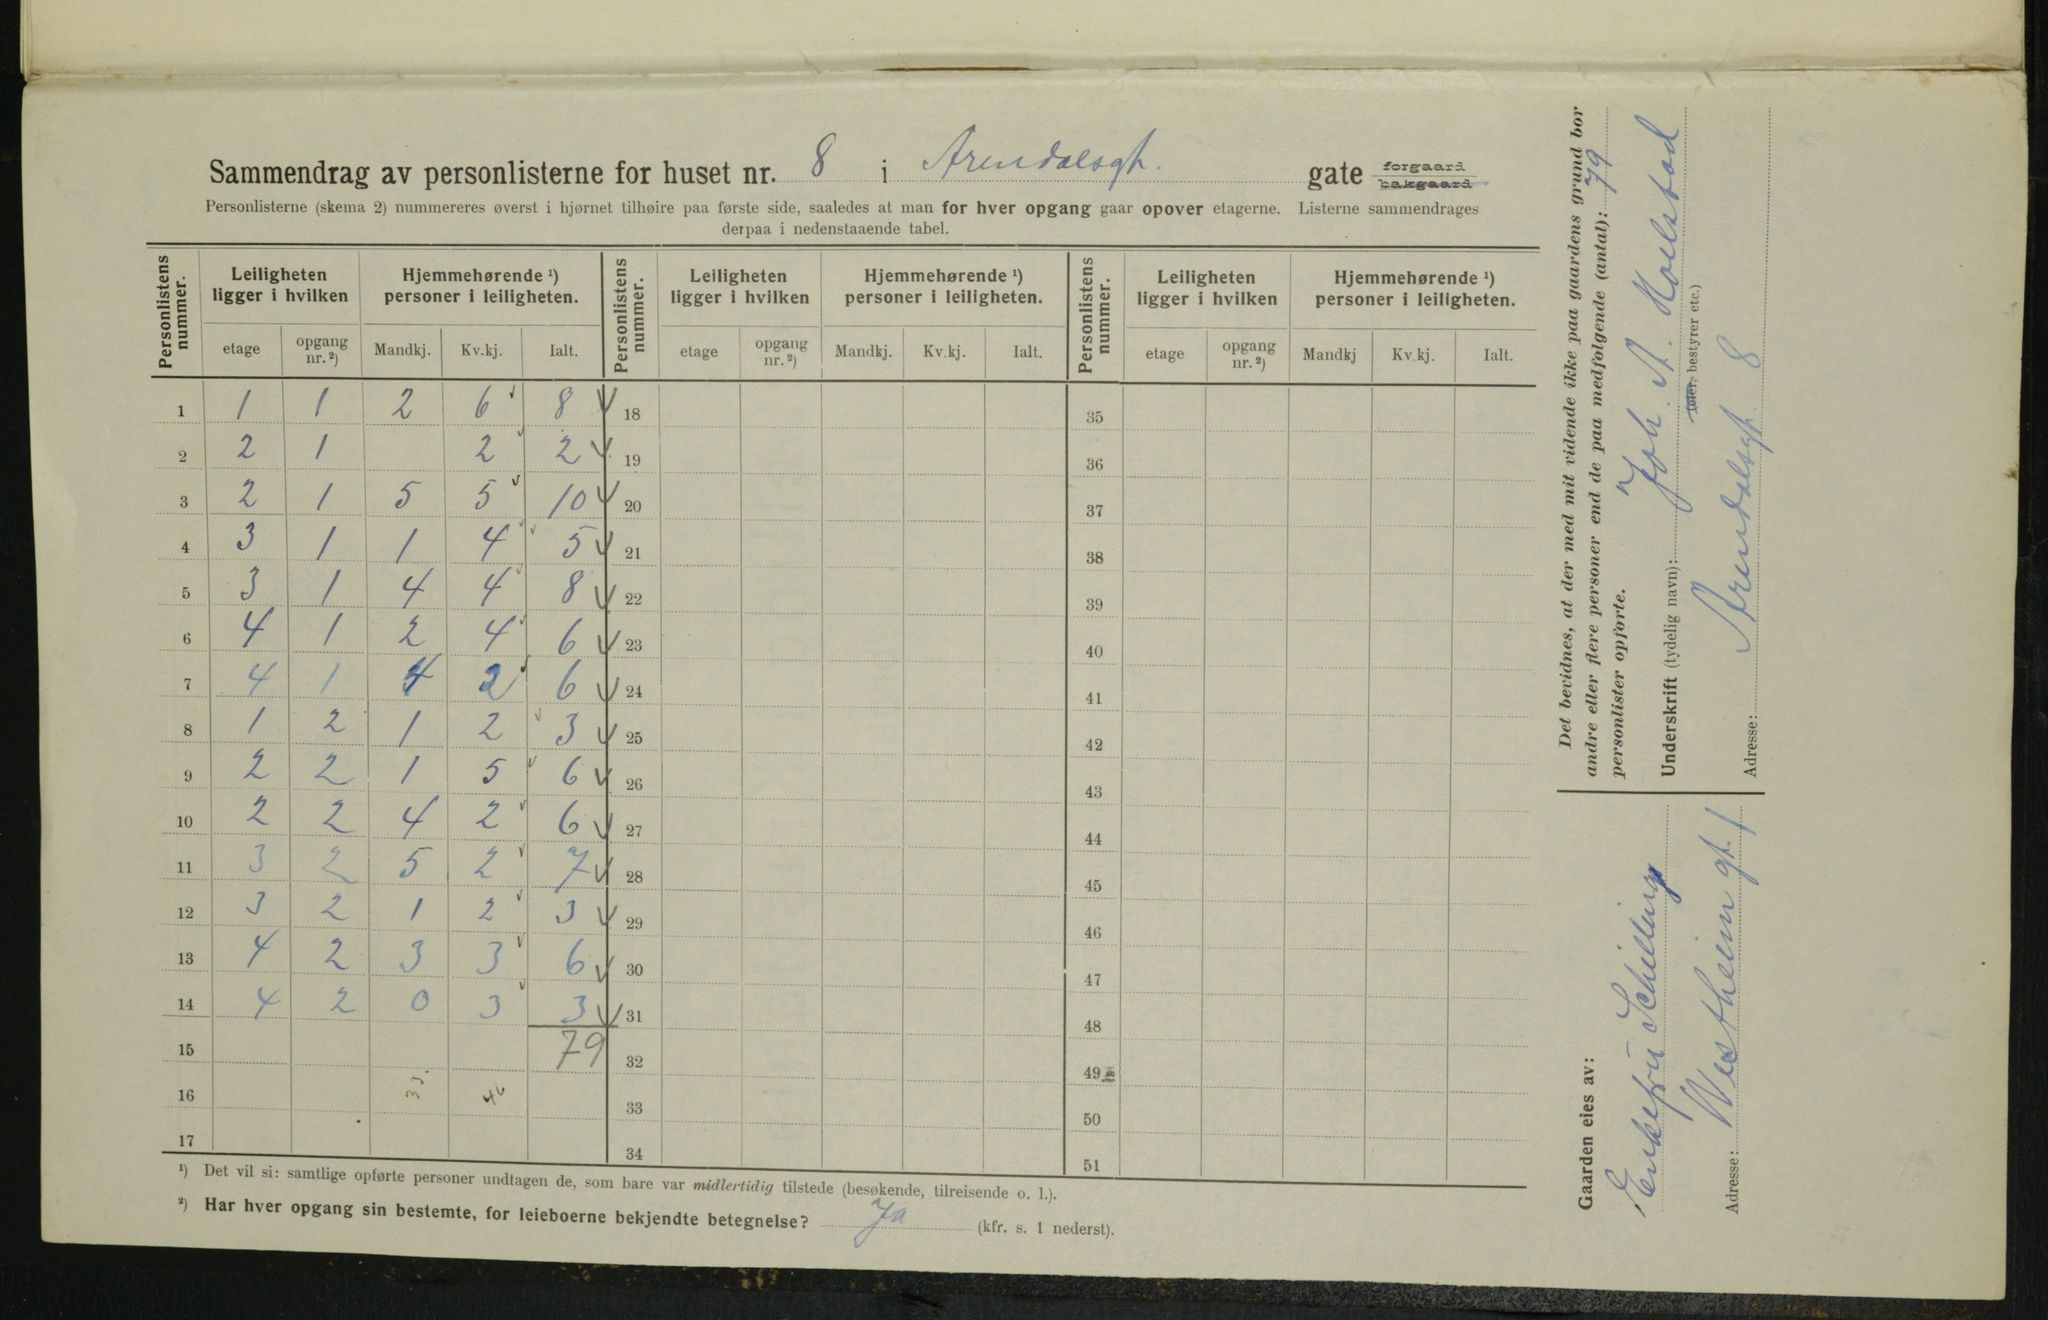 Sammendrag av personlisterne for huset nr. 8 i Arendalsgt. gate forgaard bakgaard
Personlisterne (skema 2) nummereres øverst i hjørnet tilhøire paa første side, saaledes at man for hver opgang gaar opover etagerne. Listerne sammendrages
derpaa i nedenstaaende tabel.
Personlistens nummer. Leiligheten ligger i hvilken Hjemmehørende ¹) personer i leiligheten. Personlistens nummer. Leiligheten ligger i hvilken Hjemmehørende ¹) personer i leiligheten. Personlistens nummer. Leiligheten ligger i hvilken Hjemmehørende ¹) personer i leiligheten.
etage opgang nr. ²) Mandkj. Kv.kj. Ialt. etage opgang nr. ²) Mandkj. Kv.kj. Ialt. etage opgang nr. ²) Mandkj Kv.kj. Ialt.
1 1 1 2 6 8 18 35
2 2 1 2 2 19 36
3 2 1 5 5 10 20 37
4 3 1 1 4 5 21 38
5 3 1 4 4 8 22 39
6 4 1 2 4 6 23 40
7 4 1 4 2 6 24 41
8 1 2 1 2 3 25 42
9 2 2 1 5 6 26 43
10 2 2 4 2 6 27 44
11 3 2 5 2 7 28 45
12 3 2 1 2 3 29 46
13 4 2 3 3 6 30 47
14 4 2 0 3 3 31 48
15 79 32 49
16 33. 46 33 50
17 34 51
¹) Det vil si: samtlige opførte personer undtagen de, som bare var midlertidig tilstede (besøkende, tilreisende o. l.).
²) Har hver opgang sin bestemte, for leieboerne bekjendte betegnelse? Ja (kfr. s. 1 nederst).
Det bevidnes, at der med mit vidende ikke paa gaardens grund bor
andre eller flere personer end de paa medfølgende (antal): 79
personlister opførte.
Underskrift (tydelig navn): Joh. A.
(eier, bestyrer etc.)
Adresse: Arendalsgt. 8
Gaarden eies av:
Enkefru Schilling
Adresse: Westheim gt. 1